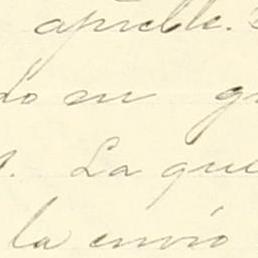 apreble.
do su gr
. La que
la envió